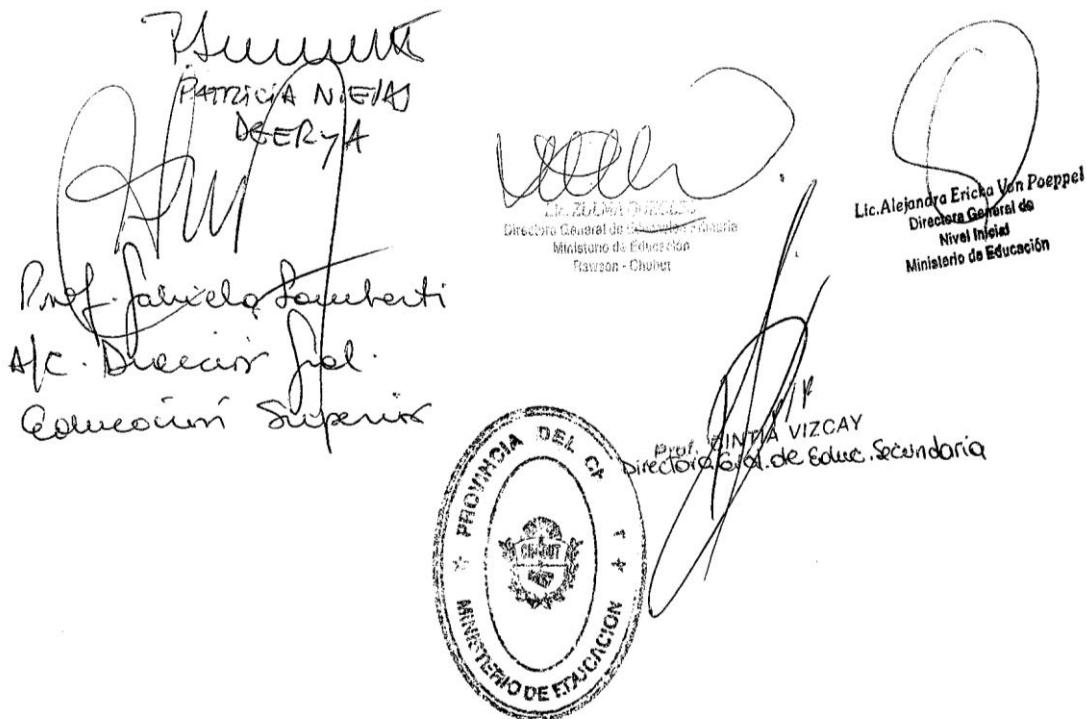 PATRICIA NIEVAS
DGERyA
Prof. Gabriela Lamberti
A/C. Dirección Gral.
Educación Superior
Lic. ZULMA
Directora General de Educación Primaria
Ministerio de Educación
Rawson - Chubut
Lic. Alejandra Ericka Von Poeppel
Directora General de
Nivel Inicial
Ministerio de Educación
Prof. CINTIA VIZCAY
Directora Gral. de Educ. Secundaria
PROVINCIA DEL CH T
CHUBUT
MINISTERIO DE EDUCACION